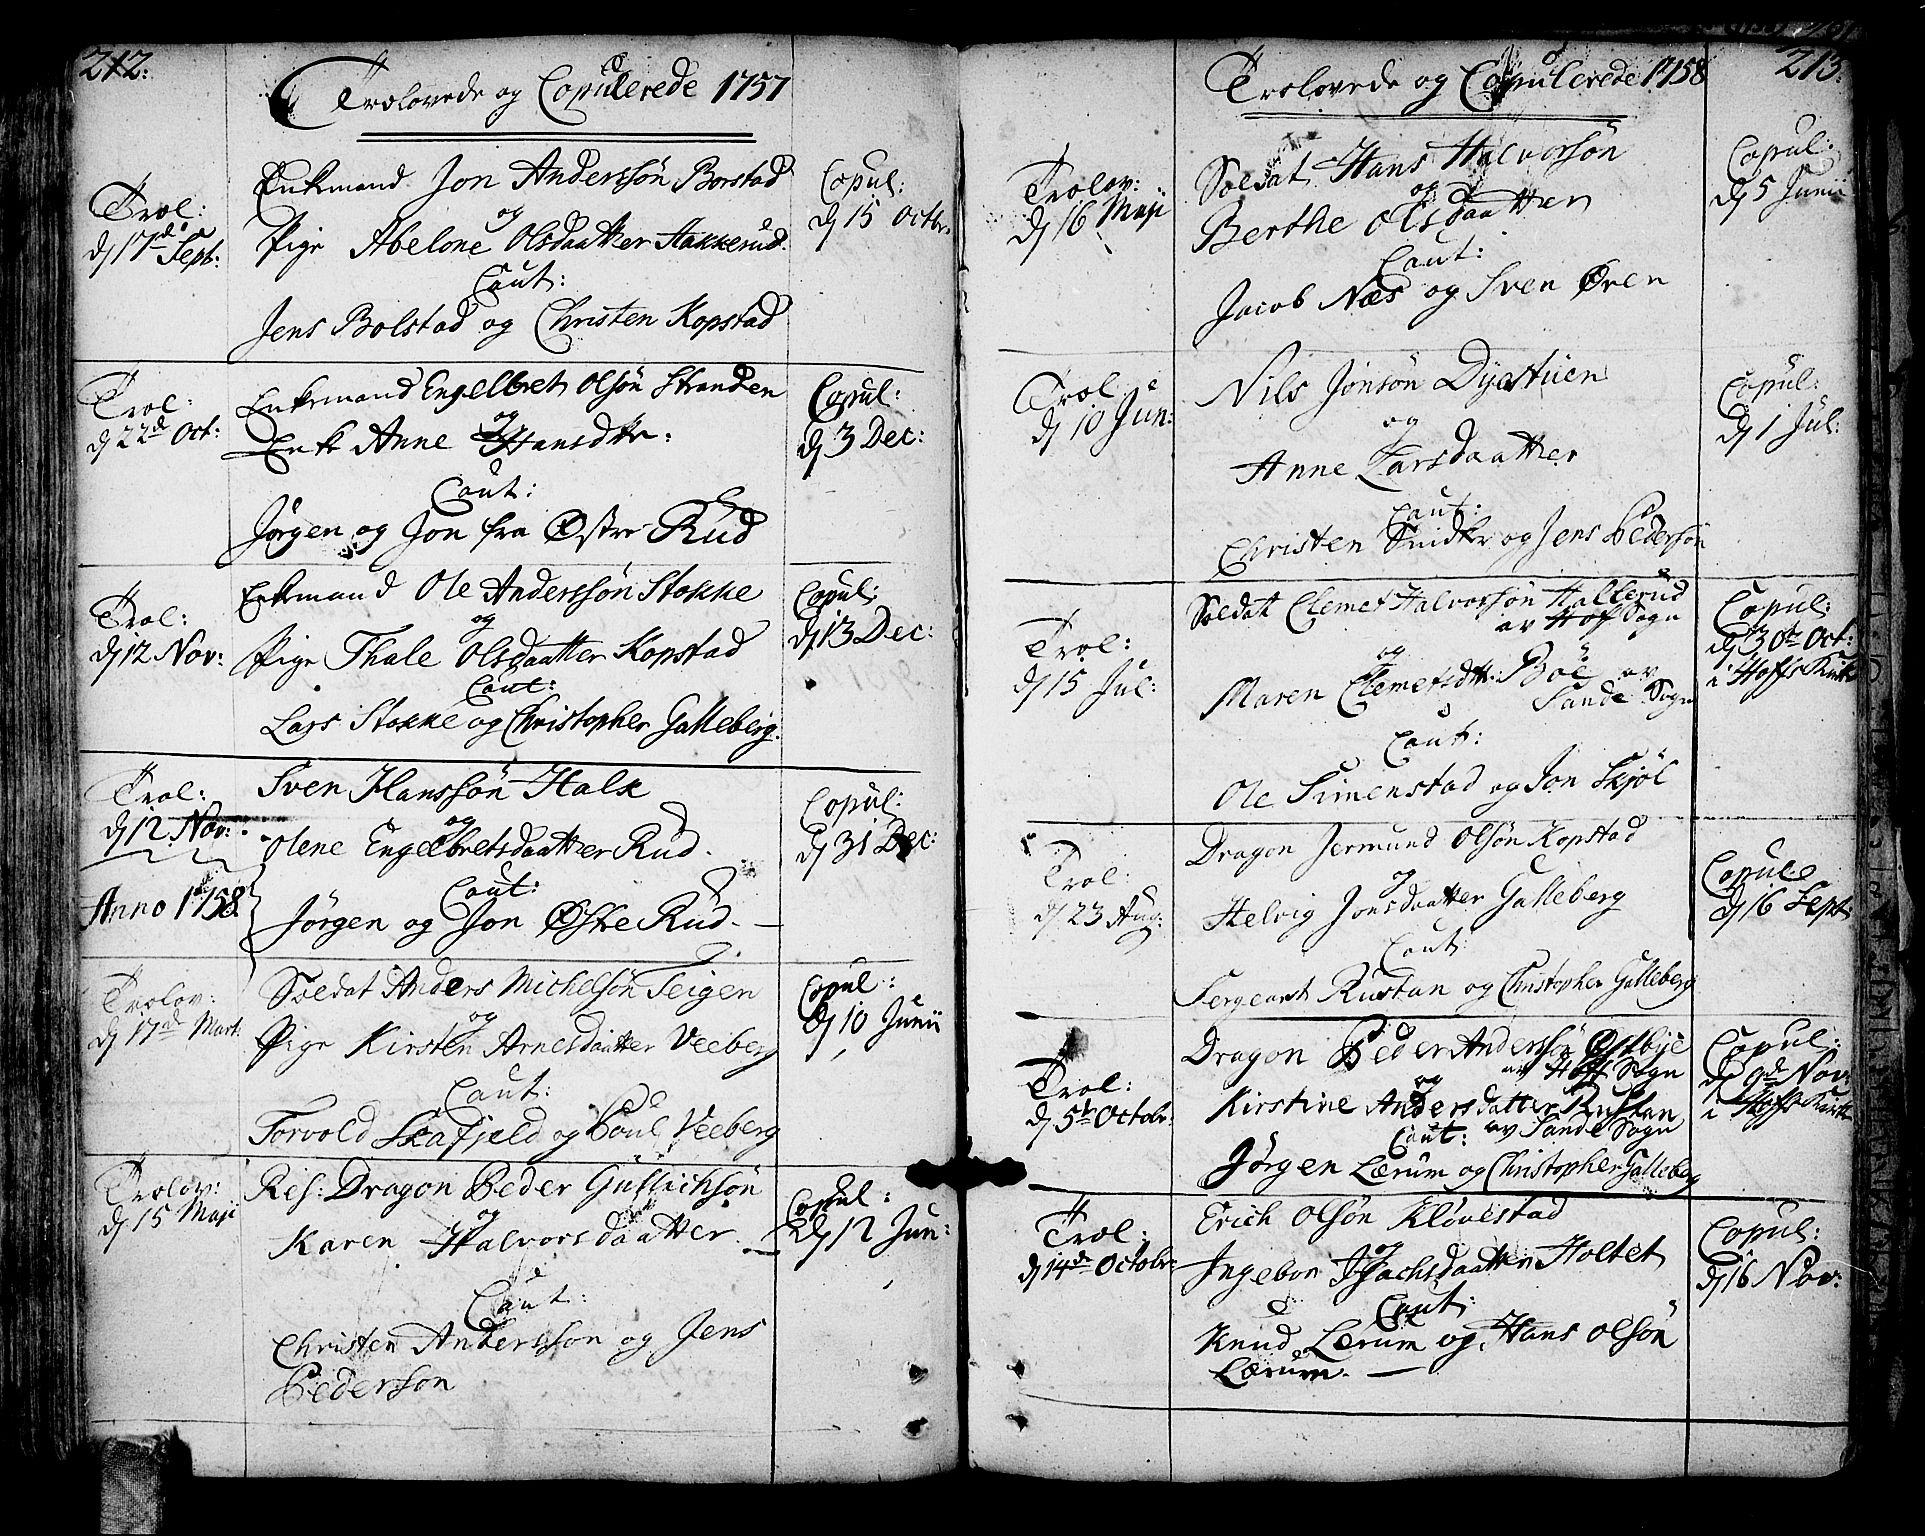 212:
Trolovede og Copulerede 1757
Trol:
dj 17de Sept:
Enkemand Jon Anderssön Borstad
og
Pige Abelone Olsdaatter Hakkerud.
Caut:
Jens Bolstad og Christen Kopstad
Copul:
dj 15 Octbr.
Trol:
dj 22de Oct:
Enkemand Engelbret Olsön Stranden
og
Enke Anne Hansdtr:
Caut:
Jörgen og Jon fra Østre Rud
Copul:
dj 3 Dec:
Trol:
dj 12 Nov:
Enkmand Ole Anderssön Stokke
og
Pige Thale Olsdaatter Kopstad
Caut:
Lars Stokke og Christopher Galleberg.
Copul:
dj 13 Dec:
Trol:
dj 12 Nov:
Sven Hanssön Halk
og
Olene Engelbretsdaatter Rud.
Caut:
Jörgen og Jon Østre Rud.
Copul:
dj 31 Dec:
Anno 1758
Trolov:
dj 17de Mart:
Soldat Anders Michelsön Teigen
og
Pige Kirsten Arnesdaatter Veeberg
Caut:
Torvold Skafjeld og Poul Veeberg
Copul:
dj 10 Junii
Trolov:
dj 15 Maji
Res: Dragon Peder Gulbrichsön
og
Karen Halvorsdaatter.
Caut:
Christen Anderssön og Jens
Pedersön
Copul:
dj 12 Jun:
213.
Trolovede og Copulerede 1758
Trolov:
dj 16 Maji
Soldat Hans Halvorsön
og
Berthe Olsdaatter
Caut:
Jacob Næs og Sven Øren
Copul:
dj 5 Junii
Trol
dj 10 Jun:
Nils Jonsön Dyestuen
og
Anne Larsdaatter
Caut:
Christen Snidkr og Jens Pedersön
Copul:
dj 1 Jul:
Trol:
dj 15 Jul:
Soldat Clemet Halvorsön Hallerud
av Hof Sogn
og
Maren Clemetsdtr: Böe av
Sande Sogn
Caut:
Ole Simenstad og Jon Skjöl
Copul:
dj 30te Oct:
i Hoffs Kirke
Trol:
dj 23 Aug:
Dragon Jermund Olsön Kopstad
og
Helvig Jonsdaatter Galleberg
Caut:
Sergeant Rustan og Christopher Galleberg
Copule
dj 16 Sept:
Trol:
dj 5te Octobr:
Dragon Peder Andersön Østbye
av Hoff Sogn
og
Kirstine Andersdatter Rustan
av Sande Sogn
Caut:
Jörgen Lærum og Christopher Galleberg
Copul:
dj 9de Nov:
i Hoffs Kirke
Trol:
dj 14de Octobr:
Erich Olsön Klövestad
og
Ingebor Isachsdaatter Holtet
Caut:
Knud Lærum og Hans Olsön
Lærum.
Copul:
dj 16 Nov: